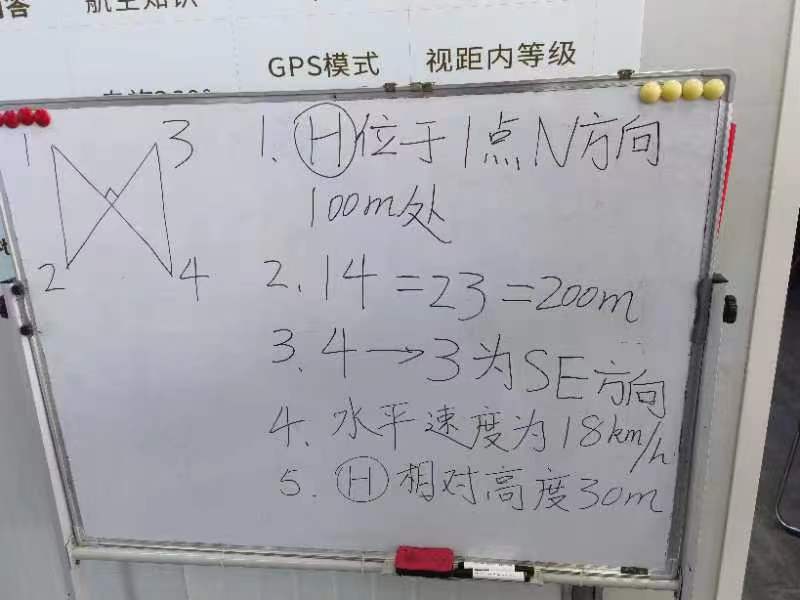 航空知识
GPS模式
视距内等级
1
3
2
4
1. H位于1点N方向
100m处
2. 14=23=200m
3. 4→3为SE方向
4. 水平速度为18km/h
5. H相对高度30m